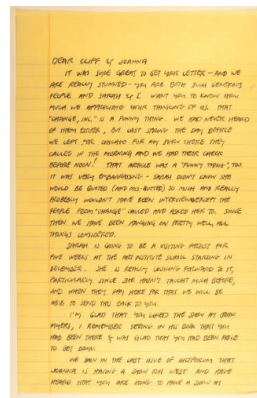 DEAR CLIFF & JOANNA
IT WAS SURE GREAT TO GET YOUR LETTER - AND WE
ARE REALLY STUNNED - YOU ARE BOTH SUCH GENEROUS
PEOPLE AND SARAH & I WANT YOU TO KNOW HOW
MUCH WE APPRECIATE YOUR THINKING OF US. THAT
"CHANGE, INC." IS A FUNNY THING. WE HAD NEVER HEARD
OF THEM EITHER, BUT LAST SPRING THE DAY BEFORE
WE LEFT FOR CHICAGO FOR MY SHOW THERE THEY
CALLED IN THE MORNING AND WE HAD THEIR CHECK
BEFORE NOON! THAT ARTICLE WAS A "FUNNY THING", TOO.
IT WAS VERY EMBARRASSING - SARAH DIDN'T KNOW SHE
WOULD BE QUOTED (AND MIS-QUOTED) SO MUCH AND REALLY
PROBABLY WOULDN'T HAVE BEEN INTERVIEWED EXCEPT THE
PEOPLE FROM "CHANGE" CALLED AND ASKED HER TO. SINCE
THEN WE HAVE BEEN HANGING ON PRETTY WELL, ALL
THINGS CONSIDERED.
SARAH IS GOING TO BE A VISITING ARTIST FOR
FIVE WEEKS AT THE ART INSTITUTE SCHOOL STARTING IN
DECEMBER. SHE IS REALLY LOOKING FORWARD TO IT,
PARTICULARLY SINCE SHE HASN'T TAUGHT MUCH BEFORE,
AND WHEN THEY PAY HERE FOR THAT WE WILL BE
ABLE TO SEND THIS BACK TO YOU.
I'M GLAD THAT YOU LIKED THE SHOW AT JOHN
MYERS, I REMEMBER SEEING IN HIS BOOK THAT YOU
HAD BEEN THERE & WAS GLAD THAT YOU HAD BEEN ABLE
TO GET DOWN.
WE SAW IN THE LAST ISSUE OF ARTFORUM THAT
JOANNA IS HAVING A SHOW FOR WEST AND HAVE
HEARD THAT YOU ARE GOING TO HAVE A SHOW AT